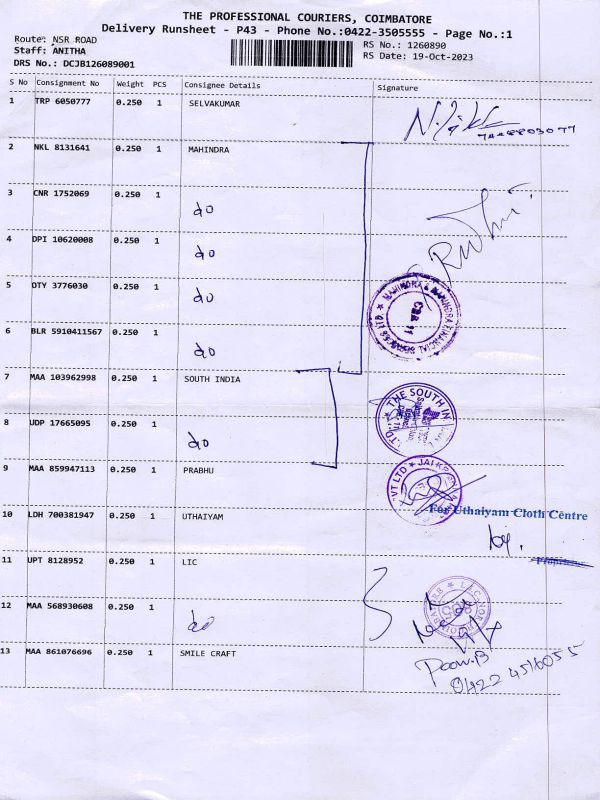 THE PROFESSIONAL COURIERS, COIMBATORE
Delivery Runsheet - P43 - Phone No.:0422-3505555 - Page No.:1
Route: NSR ROAD
RS No.: 1260890
Staff: ANITHA
RS Date: 19-Oct-2023
DRS No.: DCJB126089001
S No Consignment No Weight PCS Consignee Details Signature
1 TRP 6050777 0.250 1 SELVAKUMAR
2 NKL 8131641 0.250 1 MAHINDRA
3 CNR 1752069 0.250 1 do
4 DPI 10620008 0.250 1 do
5 OTY 3776030 0.250 1 do
6 BLR 5910411567 0.250 1 do
7 MAA 103962998 0.250 1 SOUTH INDIA
THE SOUTH IN
8 UDP 17665095 0.250 1 do
9 MAA 859947113 0.250 1 PRABHU
10 LDH 700381947 0.250 1 UTHAIYAM
For Uthaiyam Cloth Centre
11 UPT 8128952 0.250 1 LIC
12 MAA 568930608 0.250 1 do
13 MAA 861076696 0.250 1 SMILE CRAFT
0422 4516055